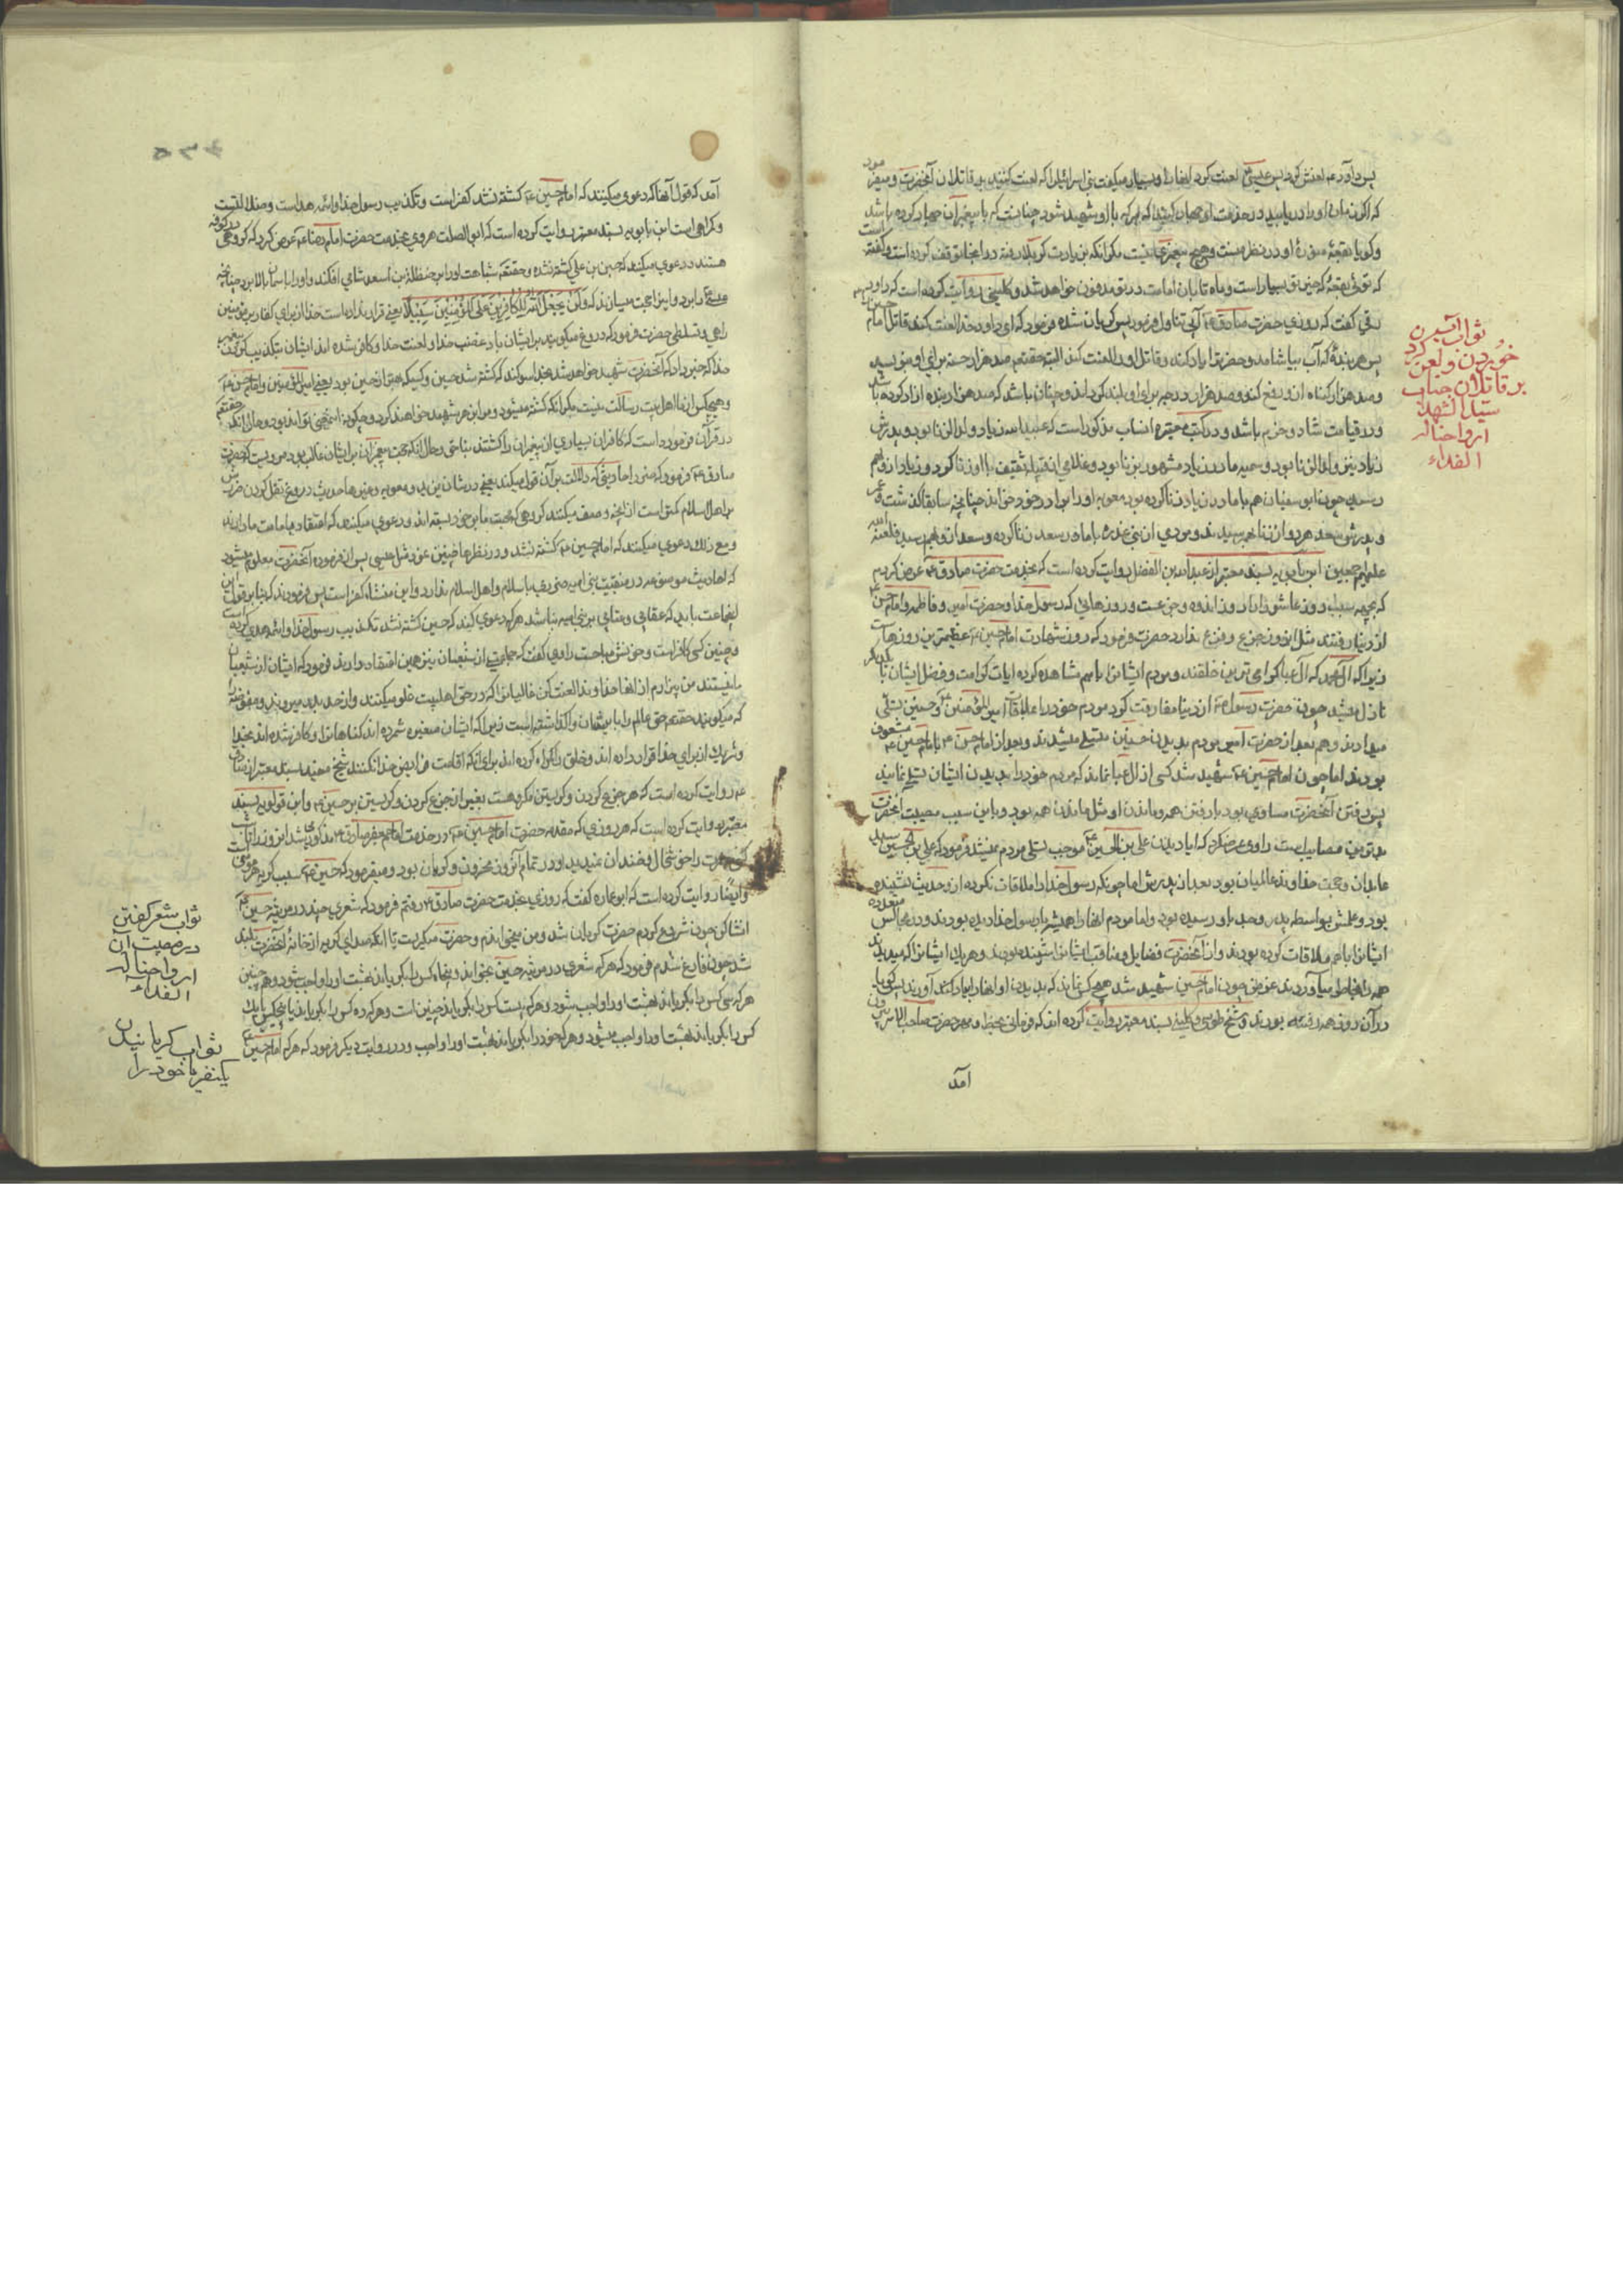 پس داود ع لعنش کرد پس عیسی ع لعنت کرد ایشانرا و بسیار میگفت بنی اسرائیل را که لعنت کنید بر قاتلان آنحضرت و میفرمود
که اگر زمان او را دریابید در خدمت او جهاد کنید که هر که با او شهید شود چنانست که با پیغمبران جهاد کرده باشد
و گویا بقعهٔ منورهٔ او در نظر منست و هیچ پیغمبری نیست مگر آنکه بزیارت کربلا رفته و در آنجا توقف کرده است و گفته است
که توئی بقعهٔ که خیر تو بسیار است و ماه تابان امامت در تو مدفون خواهد شد و کلینی روایت کرده است که داود
رقی گفت که روزی حضرت صادق ع آبی تناول فرمود پس گریان شده فرمود که ای داود خدا لعنت کند قاتل امام حسین را
پس هر بندهٔ که آب بیاشامد و حضرتش را یاد کند و قاتل او را لعنت کند البته حقتعم صد هزار حسنه برای او بنویسد
و صد هزار گناه از او رفع کند و صد هزار درجه برای او بلند گرداند و چنان باشد که صد هزار بنده آزاد کرده باشد
و در قیامت شاد و خرم باشد و در کتب معتبره انساب مذکور است که عبیدالله زیاد ولدالزنا بود و پدرش
زیاد نیز ولدالزنا بود و سمیه مادر زیاد مشهور بزنا بود و غلامی از قبیله ثقیف با او زنا کرد و زیاد از او بهم
رسید چون ابوسفیان هم با مادر زیاد زنا کرده بود معویه او را برادر خود خواند چنانچه سابقا گذشت و عمر
و پدرش سعد هر دو از زنا بهم رسیدند و مردی از بنی عذره با مادر سعد زنا کرده و سعد از او بهم رسید فلعنة الله
علیهم اجمعین ابن بابویه بسند معتبر از عبدالله بن الفضل روایت کرده است که بخدمت حضرت صادق ع عرض کردم
که بچه سبب روز عاشورا را روز اندوه و جزعست و روزهائی که رسول خدا و حضرت امیر و فاطمه و امام حسن ع
از دنیا رفتند مثل این روز جزع و فزع ندارد حضرت فرمود که روز شهادت امام حسین ع عظیمترین روزهاست
زیرا که آل عبا گرامی‌ترین خلقند و مردم ایشانرا با هم مشاهده کرده آیات کرامت و فضل ایشان با یکدیگر
نازل میشد چون حضرت رسول ص از دنیا مفارقت کرد مردم خود را بملاقات امیرالمؤمنین ع و حسنین تسلی
میدادند و هم بعد از حضرت امیر مردم بدیدن حسنین متسلی میشدند و بعد از امام حسن ع بامام حسین ع مشعوف
بودند اما چون امام حسین ع شهید شد کسی از آل عبا نماند که مردم خود را بدیدن ایشان تسلی نمایند
پس رفتن آنحضرت مساوی بود با رفتن همه و ماندن او مثل ماندن همه بود و باین سبب مصیبت آنحضرت
بدترین مصایبست راوی عرض کرد که آیا دیدن علی بن الحسین ع موجب تسلی مردم نمیشد فرمود که علی بن الحسین سید
عابدان و حجت خداوند عالمیان بود بعد از پدرش اما چونکه رسول خدا را ملاقات نکرده از او حدیث نشنیده
بود و علمش بواسطه پدر و جد باو رسیده بود و اما مردم ایشانرا همیشه با رسول خدا دیده بودند و در مجالس متعدده
ایشانرا با هم ملاقات کرده بودند و از آنحضرت فضایل و مناقب ایشانرا شنیده بودند و هر یک ایشانرا که میدیدند
همه را بخاطر میآوردند عوض چون امام حسین شهید شد هیچکس نماند که بدیدن او ایشانرا بیاد آورند پس گویا
در آن روز همه رفته بودند و شیخ طوسی و کلینی بسند معتبر روایت کرده اند که فرمانی بخط و مهر حضرت صاحب الامر بیرون
آمد
ثواب آب
خوردن و لعن کردن
بر قاتلان جناب
سید الشهداء
ارواحنا له
الفداء
آمد که قول آنها که دعوی میکنند که امام حسین ع کشته نشد کفر است و تکذیب رسول خدا و ائمه هداست و ضلالتست
و گمراهی است ابن بابویه بسند معتبر روایت کرده است که ابوالصلت هروی بخدمت حضرت امام رضا ع عرض کرد که گروهی در کوفه
هستند و دعوی میکنند که حسین بن علی کشته نشده و حقتعم شباهت او را بر حنظلة بن اسعد شامی افکند و او را بآسمان بالا برد چنانچه
عیسی ع را برد و این آیه را حجت میسازند که وَلَنْ یَجْعَلَ اللّٰهُ لِلْکَافِرِینَ عَلَی الْمُؤْمِنِینَ سَبِیلًا یعنی قرار نداده است خدا از برای کفار بر مؤمنین
راهی و تسلطی حضرت فرمود که دروغ میگویند بر ایشان باد غضب خدا و لعنت خدا و کافر شده اند ایشان بتکذیب کردن پیغمبر
خدا که خبر داد که آنحضرت شهید خواهد شد بخدا سوگند که کشته شد حسین و کسیکه بهتر از حسین بود یعنی امیرالمؤمنین و امام حسن ع
و هیچکس از ما اهل بیت رسالت نیست مگر آنکه کشته میشود و مرا بزهر شهید خواهند کرد و چگونه این معنی تواند بود و حال آنکه حقتعم
در قرآن فرموده است که کافران بسیاری از پیغمبران را کشتند بناحق و حال آنکه حجت پیغمبران بر ایشان غالب بود مرویست که حضرت
صادق ع فرمود که ضرر احادیثی که دلالت بر آن قول میکند یعنی در شان بنی امیه و معویه و غیرها حدیث دروغ نقل کردن ضررش
بر اهل اسلام کمتر است از آنچه وصف میکنند گروهی که محبت ما بر خود بسته اند و دعوی میکنند که اعتقاد بامامت ما دارند
و مع ذلک دعوی میکنند که امام حسین ع کشته نشد و در نظرها چنین نمود مثل عیسی پس از فرموده آنحضرت معلوم میشود
که احادیث موضوعه در منقبت بنی امیه ضرری باسلام و اهل اسلام ندارد و این منشاء کفر است پس فرمودند که بنا بر قول این
جماعت باید که عقابی و عتابی بر بنی امیه نباشد هر که دعوی کند که حسین کشته نشد تکذیب رسول خدا و ائمه هدی کرده است
و چنین کسی کافر است و خونش مباحست راوی گفت که جماعتی از شیعیان نیز همین اعتقاد دارند فرمود که ایشان از شیعیان
ما نیستند من بیزارم از آنها خداوندا لعنت کن غالیانرا که در حق اهلبیت غلو میکنند و از حد بدر میروند و مفوضه را
که میگویند حقتعم خلق عالم را بایشان واگذاشته است زیرا که ایشان صغیره شمرده اند گناهانرا و کافر شده اند بخدا
و شریک از برای خدا قرار داده اند و خلق را گمراه کرده اند برای آنکه اقامت فرایض خدا نکنند شیخ مفید بسند معتبر از صادق
ع روایت کرده است که هر جزع کردن و گریستن مکروهست بغیر از جزع کردن و گریستن بر حسین ع و ابن قولویه بسند
معتبر روایت کرده است که هر روزی که مقدمه حضرت امام حسین ع در خدمت امام جعفر صادق ع مذکور میشد آن روز تا شب
کسی حضرت را خوشحال و خندان نمیدید و در تمام آنروز محزون و گریان بود و میفرمود که حسین ع سبب گریه هر مؤمن است
و ایضا روایت کرده است که ابوعماره گفت که روزی بخدمت حضرت صادق ع رفتم فرمود که شعری چند در مرثیه حسین ع
انشا کن چون شروع کردم حضرت گریان شد و من میخواندم و حضرت میگریست تا آنکه صدای گریه از خانه آنحضرت بلند
شد چون فارغ شدم فرمود که هر که شعری در مرثیه حسین بخواند و پنجاه کس را بگریاند بهشت او را واجب شود و همچنین
هر که سی کس را بگریاند بهشت او را واجب شود و هر که بیست کس را بگریاند چنین است و هر که ده کس را بگریاند یا پنجکس یا یک
کس را بگریاند بهشت او را واجب میشود و هر که خود را بگریاند بهشت او را واجب و در روایت دیگر فرمود که هر که امام حسین
ثواب شعر گفتن
در مصیبت آن
ارواحنا له
الفداء
ثواب گریانیدن
یکنفر یا خود را